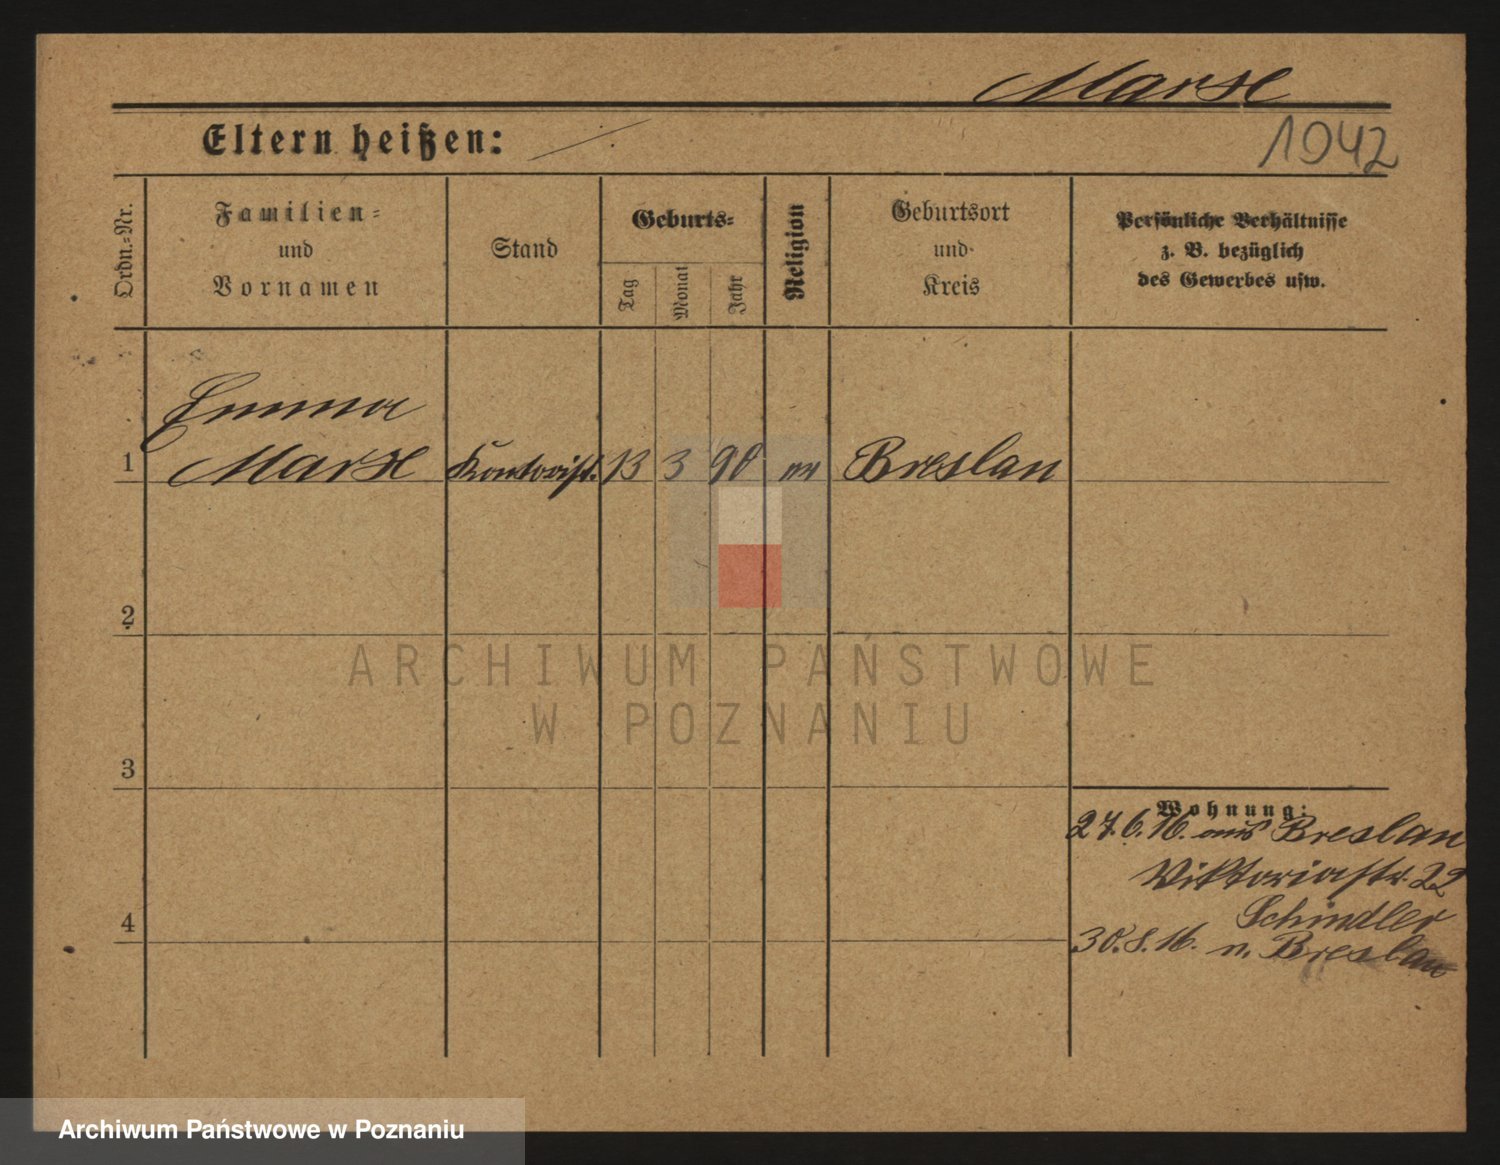 Marse
Eltern heißen:
1942
Ordn.=Nr.
Familien=
und
Vornamen
Stand
Geburts=
Tag
Monat
Jahr
Religion
Geburtsort
und
Kreis
Persönliche Verhältnisse
z. B. bezüglich
des Gewerbes usw.
Emma
1 Kontorist. 13 3 90 Breslau
2
3
4
Wohnung:
27.6.16. aus Breslau
Viktoriastr. 22
Schindler
30.8.16. n. Breslau
ARCHIWUM PAŃSTWOWE
W POZNANIU
Archiwum Państwowe w Poznaniu